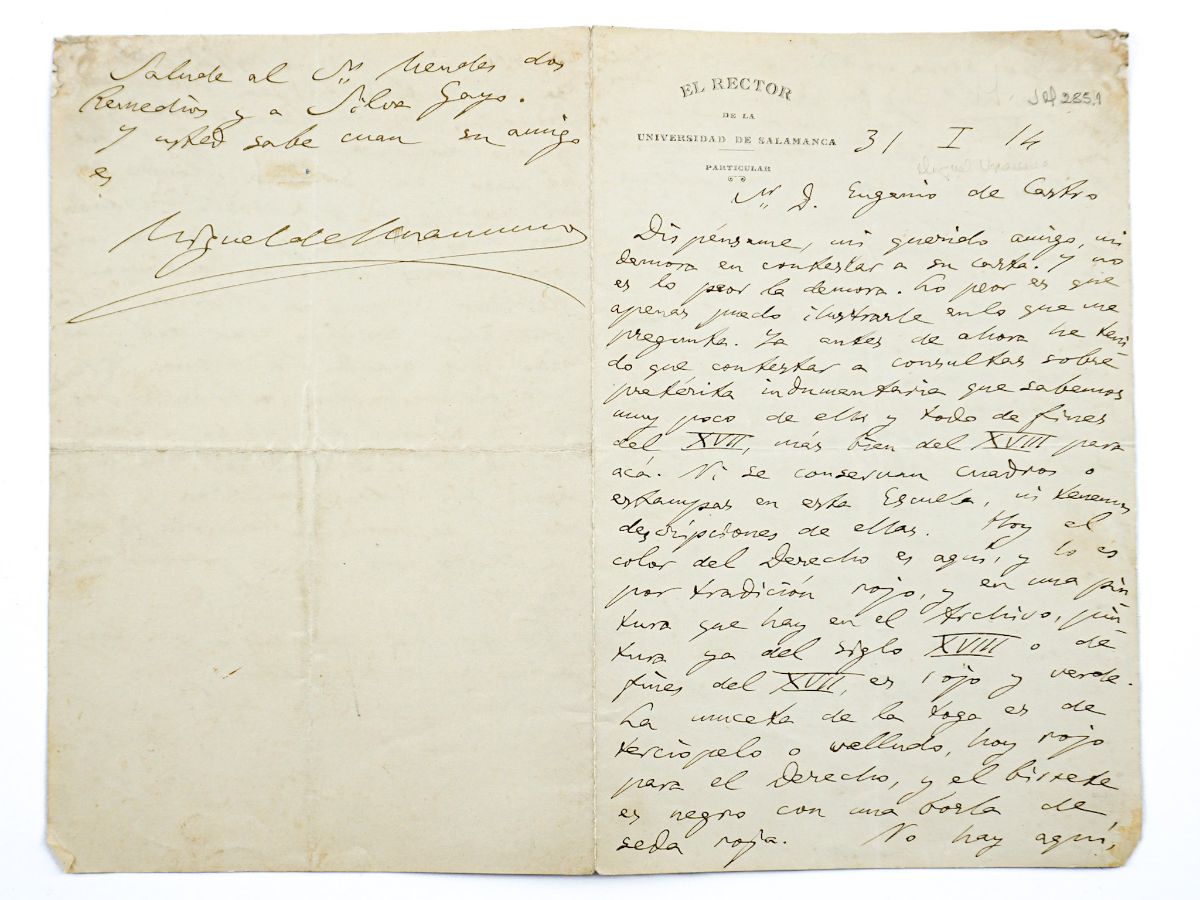 EL RECTOR
DE LA
UNIVERSIDAD DE SALAMANCA
PARTICULAR
31 I 14
Sr. D. Eugenio de Castro
Dispénseme, mi querido amigo, mi
demora en contestar a su carta. Y no
es lo peor la demora. Lo peor es que
apenas puedo ilustrarle en lo que me
pregunta. Ya antes de ahora he teni
do que contestar a consultas sobre
pretérita indumentaria que sabemos
muy poco de ella y todo de fines
del XVII, más bien del XVIII para
acá. Ni se conservan cuadros o
estampas en esta Escuela, ni tenemos
descripciones de ellas. Hoy el
color del Derecho es aquí, y lo es
por tradición rojo, y en una pin
tura que hay en el Archivo, pin
tura ya del siglo XVIII o de
fines del XVII, es rojo y verde.
La muceta de la toga es de
terciopelo o velludo, hoy rojo
para el Derecho, y el birrete
es negro con una borla de
seda roja. No hay aquí,
Salude al Sr. Mendes dos
Remedios y a Silva Gayo.
Y usted sabe cuan su amigo
es
Miguel de Unamuno